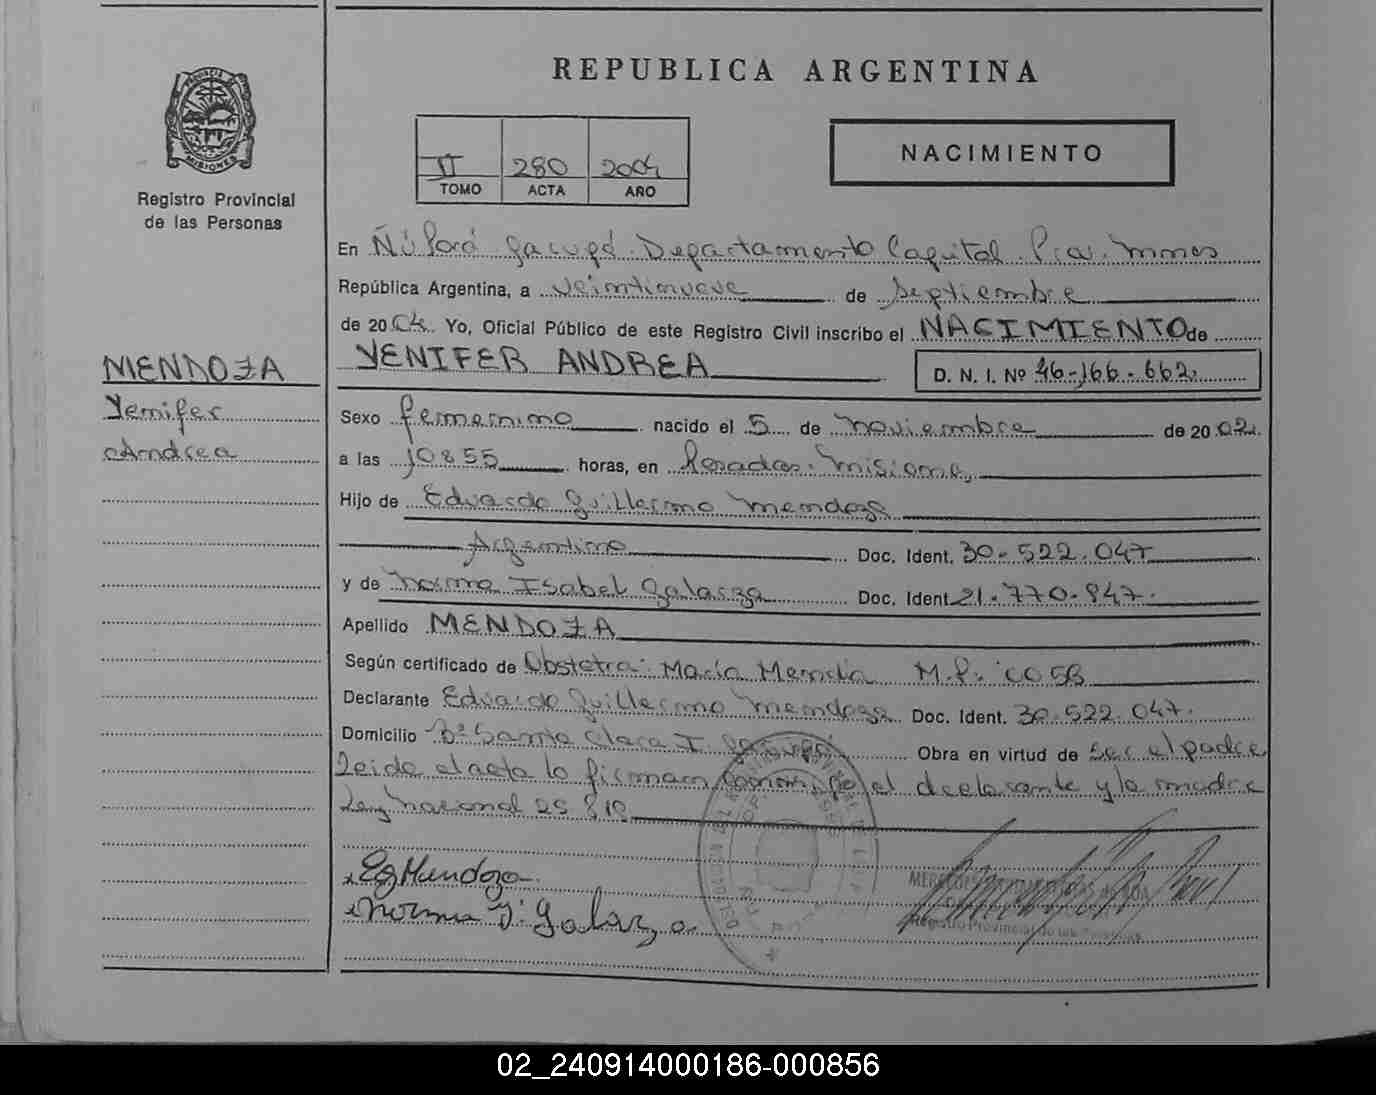 REPUBLICA ARGENTINA
PROVINCIA DE MISIONES
Registro Provincial
de las Personas
II 280 2004
TOMO ACTA AÑO
NACIMIENTO
En Ñú Porá Garupá Departamento Capital Pcia. Mnes
República Argentina, a veintinueve de Septiembre
de 2004 Yo, Oficial Público de este Registro Civil inscribo el NACIMIENTO de
MENDOZA
YENIFER ANDREA
D. N. I. Nº 46-166-662
Yenifer
Andrea
Sexo femenino nacido el 5 de noviembre de 2002
a las 10855 horas, en Posadas. Misiones
Hijo de Eduardo Guillermo Mendoza
Argentino Doc. Ident. 30-522.047
y de Norma Isabel Galarza Doc. Ident 21-770-847.
Apellido MENDOZA
Según certificado de Obstetra: María M.P.
Declarante Eduardo Guillermo Mendoza Doc. Ident. 30.522.047.
Domicilio Bº Santa Clara I Garupá Obra en virtud de Ser el padre
Leida el acta la firman conmigo el declarante y la madre
Ley Nacional 25 819
EGMendoza
Norma I. Galarza
Registro Provincial de las Personas
02_240914000186-000856